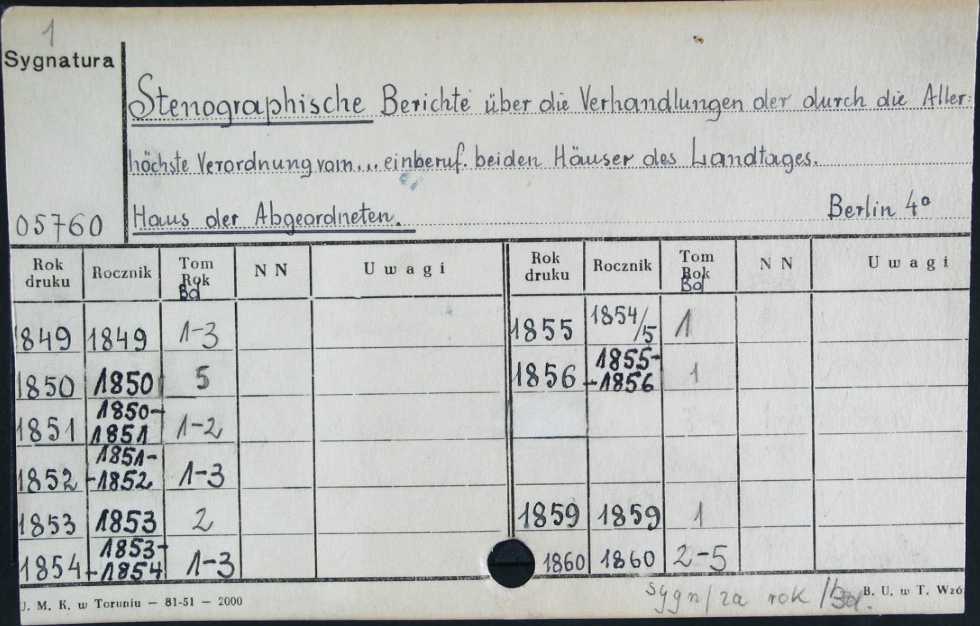 1
Sygnatura
Stenographische Berichte über die Verhandlungen der durch die Aller=
höchste Verordnung vom... einberuf. beiden Häuser des Landtages.
05760 Haus der Abgeordneten. Berlin 4°
Rok druku Rocznik Tom Rok Bd N N Uwagi Rok druku Rocznik Tom Rok Bd N N Uwagi
1849 1849 1-3 1855 1854/5 1
1850 1850 5 1856 1855-1856 1
1851 1850-1851 1-2
1852 1851-1852 1-3
1853 1853 2 1859 1859 1
1854 1853-1854 1-3 1860 1860 2-5
J. M. K. w Toruniu — 81-51 — 2000 sygn/za rok /Bd. B. U. w T. Wzó